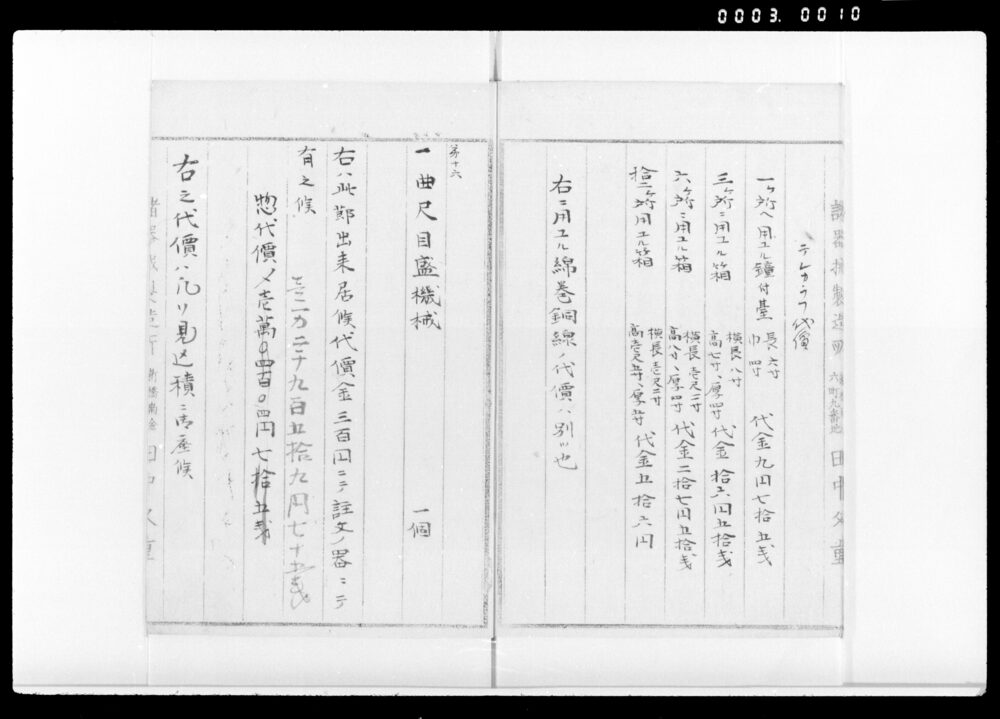 0003.0010
テレカラフ代價
一ヶ所ヘ用ユル鐘付臺 長六寸 巾四寸 代金九円七拾五戔
三ヶ所ニ用ユル箱 横長八寸 高七寸、厚四寸 代金拾六円五拾戔
六ヶ所ニ用ユル箱 横長壱尺二寸 高八寸、厚四寸 代金二拾七円五拾戔
拾二ヶ所用ユル箱 横長壱尺二寸 高壱尺五寸、厚五寸 代金五拾六円
右ニ用ユル綿巻銅線ノ代價ハ別ツ也
第十六
一曲尺目盛機械 一個
右ハ此節出来居候代價金三百円ニテ註文ノ器ニテ
有之候
壱万二千九百五拾九円七十五戔
惣代價〆壱萬〇四百〇四円七拾五戔
右之代價ハ凡ソ見込積ニ御座候
諸器械製造所
六町九番地
田中久重
新橋南金